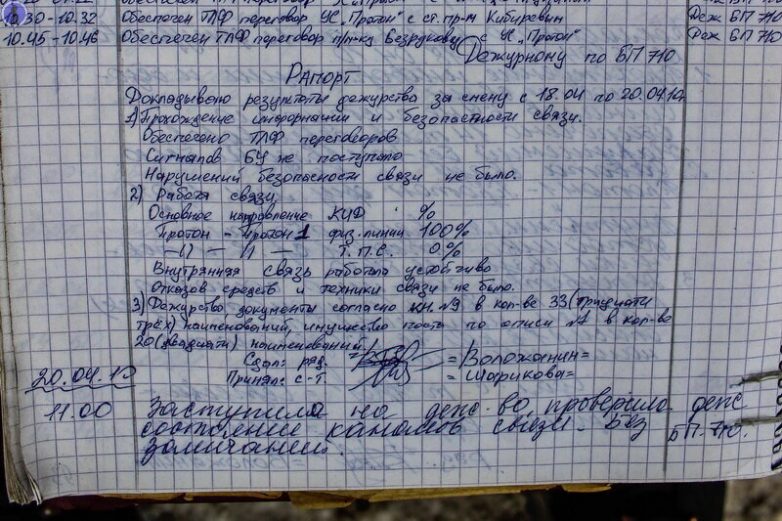 10.30-10.32 Обеспечен ТЛФ переговор УС „Протон" с ст. пр-м Кибиревым Деж БП 710
10.45-10.46 Обеспечен ТЛФ переговор пр-ку Безрукову с УС „Протон" Деж БП 710
Дежурному по БП 710
Рапорт
Докладываю результаты дежурства за смену с 19.04 по 20.04.10
1) Прохождение информации и безопастности связи.
Обеспечено ТЛФ переговоров
Сигналов БУ не поступало
Нарушений безопасности связи не было.
2) Работа связи
Основное направление КИД %
Протон - Протон 1 физ. линии 100%
—//— —//— Т.П.С. 0%
Внутрянняя связь работала устойчиво
Отказов средств и техники связи не было.
3) Дежурство, документы согласно кн. №9 в кол-ве 33 (тридцати
трёх) наименований, имущество поста по описи №1 в кол-во
20 (двадцати) наименований
Сдал: ряд. =Воложанин=
Принял: с-т. =Шарикова=
20.04.10
11.00 Заступила на деж-во, проверила деж
состояние каналов связи - Без БП-710.
замичаний.